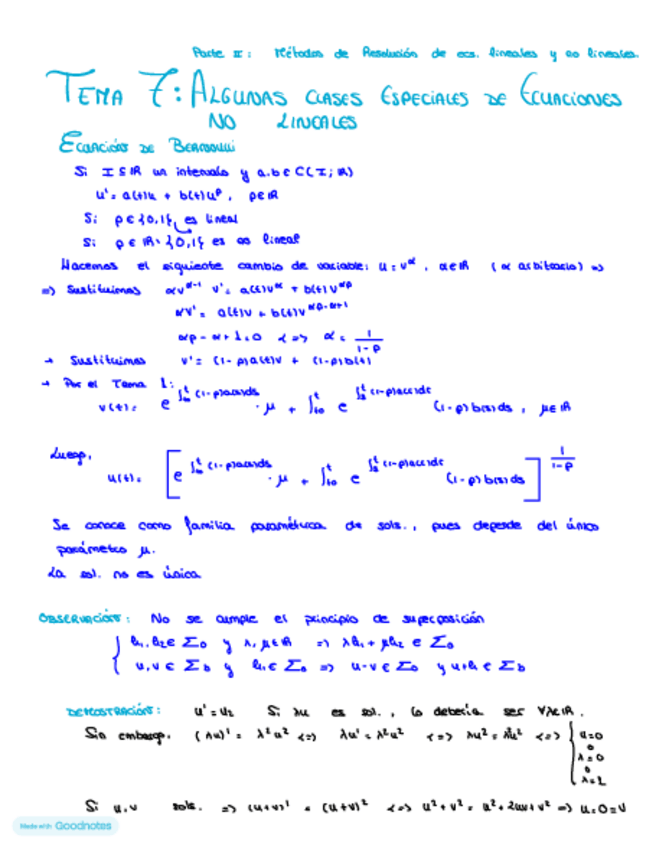 Parte II: Métodos de Resolución de ecs. lineales y no lineales.
TEMA 7: ALGUNAS CLASES ESPECIALES DE ECUACIONES
NO LINEALES
ECUACIÓN DE BERNOULLI
Si I⊆ℝ un intervalo y a,b∈C(I;ℝ)
u'= a(t)u + b(t)u^p, p∈ℝ
Si p∈{0,1}, es lineal
Si p∈ℝ\{0,1} es no lineal
Hacemos el siguiente cambio de variable: u=v^α, α∈ℝ (α arbitrario) =>
=> Sustituimos αv^{α-1} v' = a(t)v^α + b(t)v^{αp}
αv' = a(t)v + b(t)v^{αp-α+1}
αp-α+1=0 <=> α = 1/(1-p)
→ Sustituimos v' = (1-p)a(t)v + (1-p)b(t)
→ Por el Tema 1:
v(t) = e^{∫_{t0}^t (1-p)a(s)ds} · μ + ∫_{t0}^t e^{∫_s^t (1-p)a(τ)dτ} (1-p)b(s)ds, μ∈ℝ
Luego,
u(t) = [e^{∫_{t0}^t (1-p)a(s)ds} · μ + ∫_{t0}^t e^{∫_s^t (1-p)a(τ)dτ} (1-p)b(s)ds]^{1/(1-p)}
Se conoce como familia paramétrica de sols., pues depende del único
parámetro μ.
La sol. no es única
OBSERVACIÓN: No se cumple el principio de superposición
{ h1,h2∈Σ0 y λ,μ∈ℝ => λh1+μh2∈Σ0
{ u,v∈Σb y h∈Σ0 => u-v∈Σ0 y u+h∈Σb
DEMOSTRACIÓN: u'=u² Si λu es sol., lo debería ser ∀λ∈ℝ.
Sin embargo, (λu)' = λ²u² <=> λu' = λ²u² <=> λu² = λ²u² <=> { u=0
o
λ=0
o
λ=1
Si u,v sols. => (u+v)' = (u+v)² <=> u²+v² = u²+2uv+v² => u=0=v
Made with Goodnotes